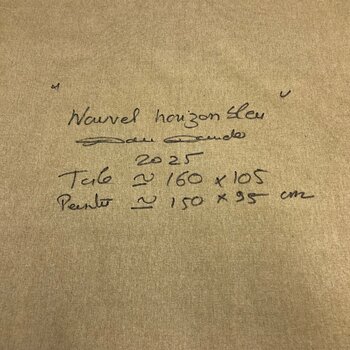 "Nouvel horizon bleu"
2025
Toile ≃ 160 x 105
≃ 150 x 95 cm